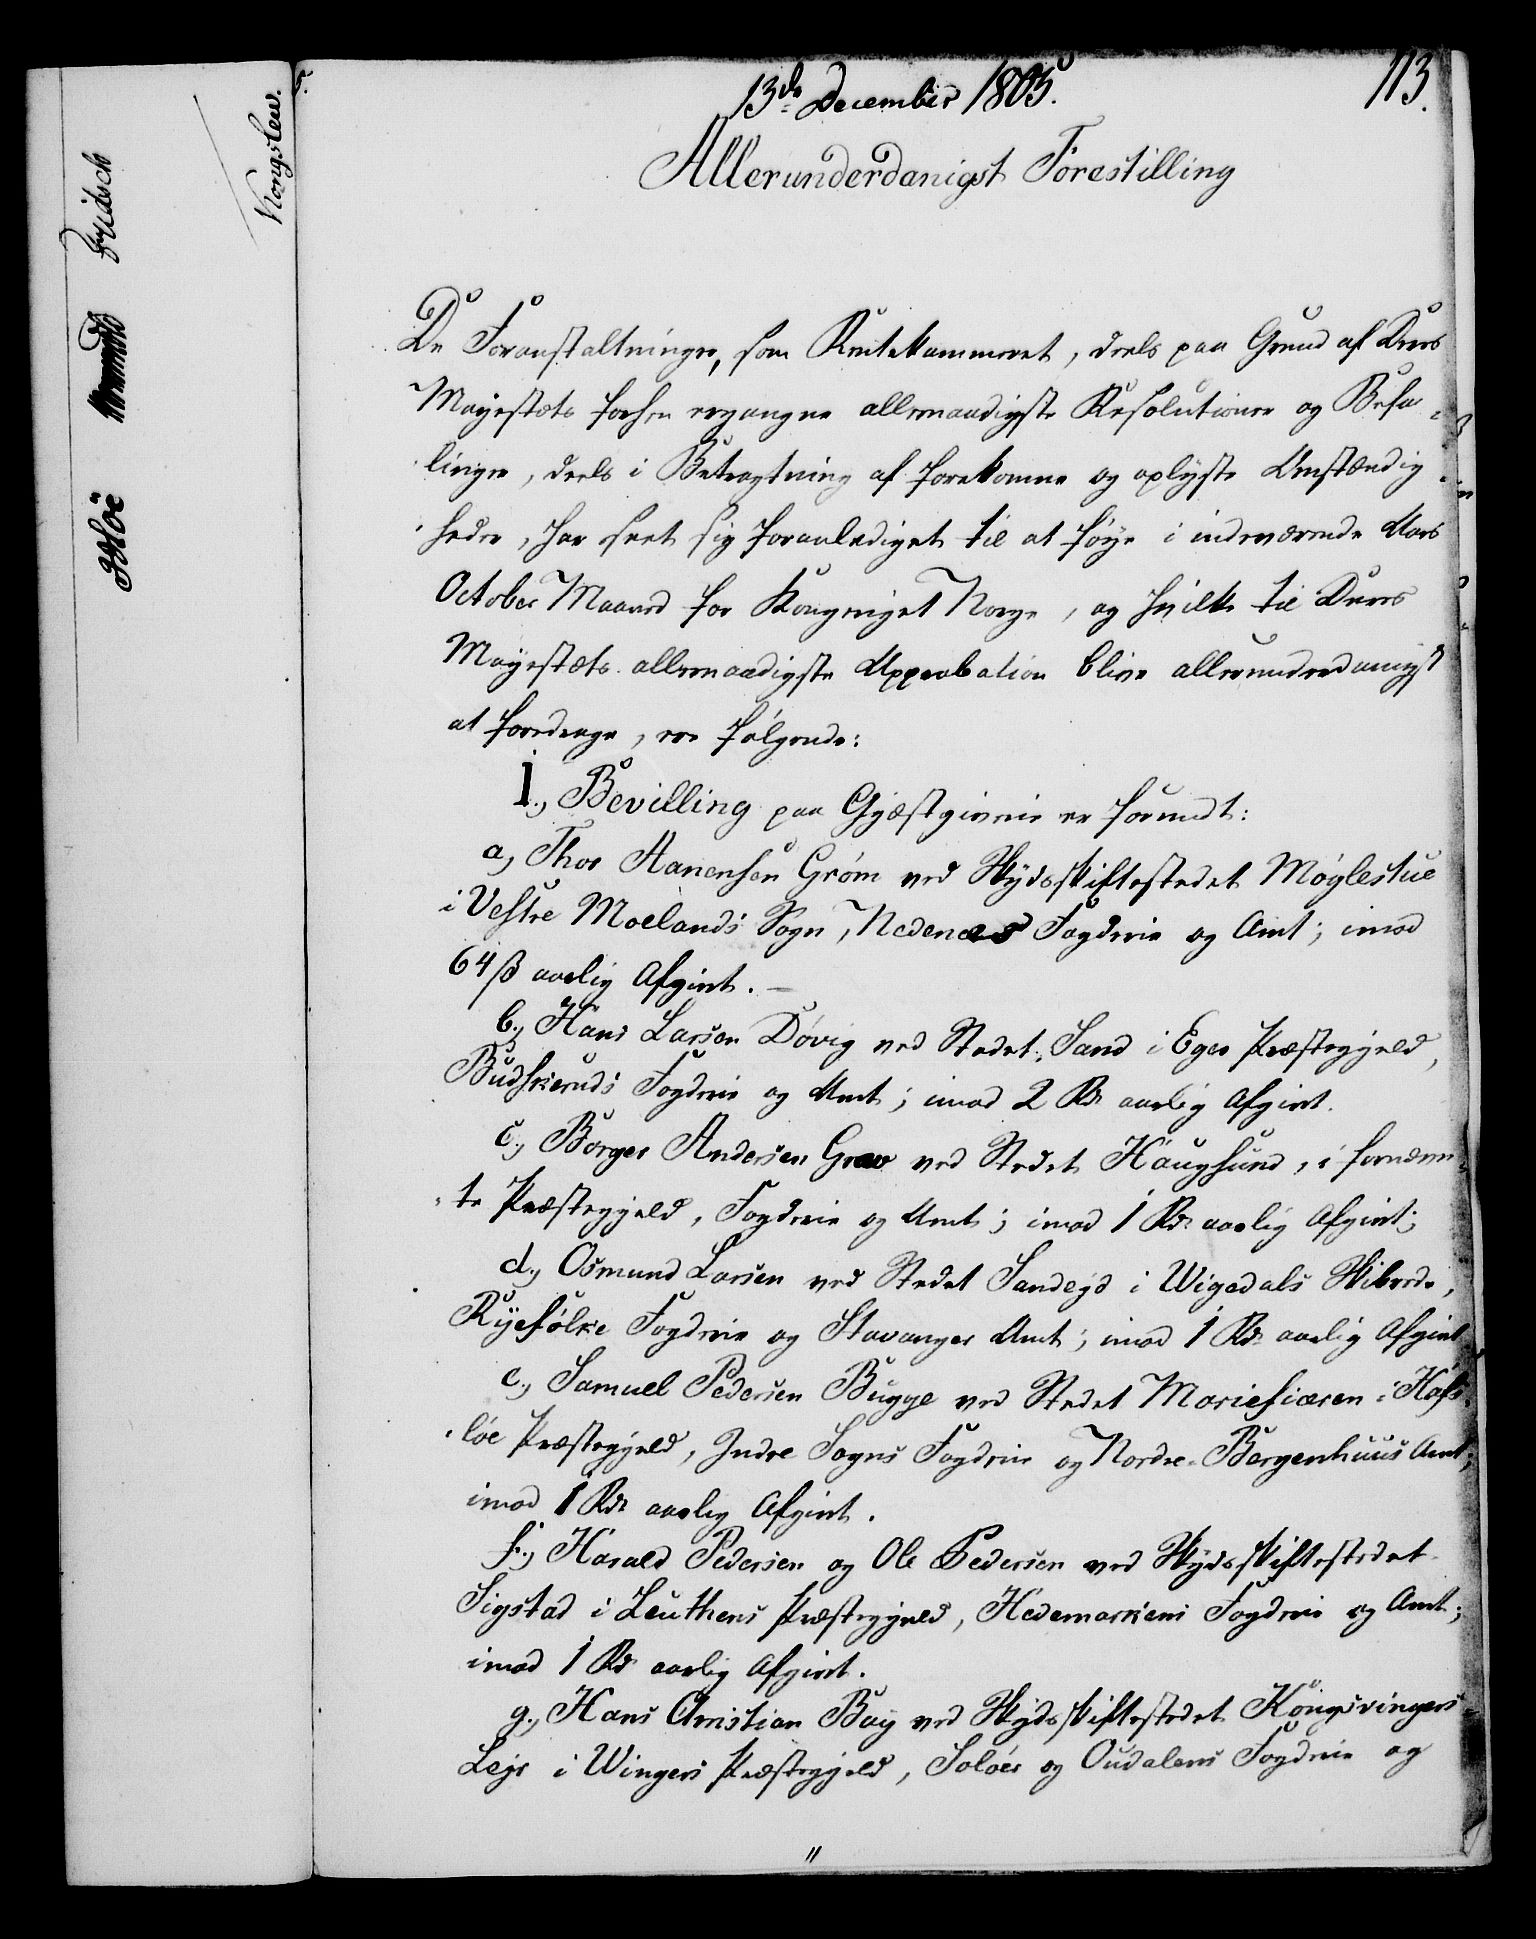 13de December 1805.
113.
Allerunderdanigst Forestilling
De Foranstaltninger, som Rentekammeret, deels paa Grund af Deres
Mayestæts forhen ergangne allernaadigste Resolutioner og Befa-
linger, deels i Betragtning af forekomne og oplyste Omstændig-
heder, har seet sig foranlediget til at føye i indeværende Aars
October Maaned for Kongeriget Norge, og hvilke til Deres
Mayestæts allernaadigste Approbation blive allerunderdanigst
at foredrage, ere følgende:
I., Bevilling paa Gjæstgiverie er forundt:
a, Thor Aanensen Grøm ved Skydsskiftestedet Møglestue
i Vestre Moelands Sogn, Nedenæs Fogderie og Amt; imod
64 ß aarlig Afgivt. —
b., Hans Larsen Døvig ved Stedet Sand i Eger Præstegjeld,
Budskeruds Fogderie og Amt; imod 2 Rd aarlig Afgivt.
c., Borger Andersen Grav ved Stedet Haugsund, i fornævn-
te Præstegjeld, Fogderie og Amt; imod 1 Rd aarlig Afgivt;
d., Osmund Larsen ved Stedet Sandejd i Wigedals Skibrede,
Ryefølke Fogderie og Stavanger Amt; imod 1 Rd aarlig Afgivt
e., Samuel Pedersen Bugge ved Stedet Mariefiæren i Hafs-
løe Præstegjeld, Indre Sogns Fogderie og Nordre Bergenhuus Amt;
imod 1 Rd aarlig Afgivt.
f., Harald Pedersen og Ole Pedersen ved Skydsskiftestedet
Sigstad i Leuthens Præstegjeld, Hedemarkens Fogderie og Amt;
imod 1 Rd aarlig Afgivt.
g., Hans Christian Bay ved Skydsskiftestedet Kongsvingers
Lejr i Wingers Præstegjeld, Soløer og Oudalens Fogderie og
Kongslew.
Fridsch